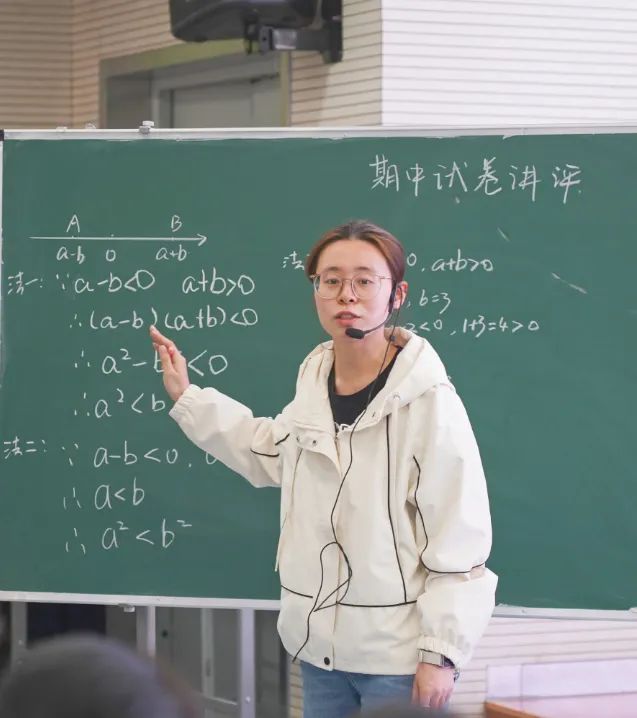 期中试卷讲评
A B
a-b 0 a+b
法一: ∵ a-b<0 a+b>0
∴(a-b)(a+b)<0
∴ a²-b <0
∴ a²<b
法二: ∵ a-b<0,
∴ a<b
∴ a²<b²
法 0, a+b>0
, b=3
2<0, 1+3=4>0